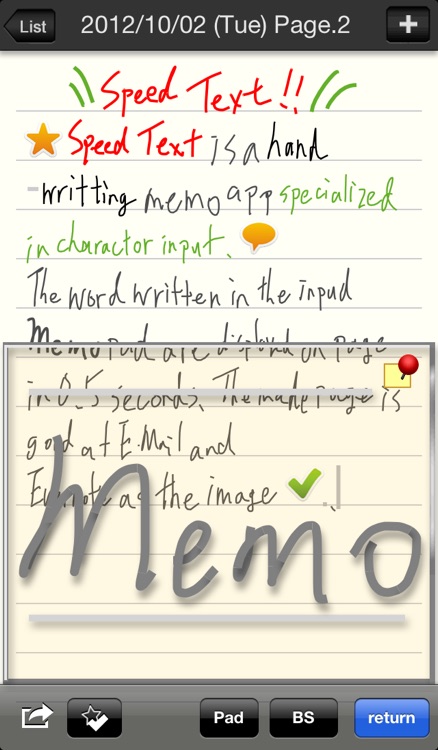 List
2012/10/02 (Tue) Page.2
Speed Text!!
Speed Text is a hand
-writting memo app specialized
in charactor input.
The word written in the inpud
Memo pad are displayd on page
in 0.5 seconds. The make page is
good at E.Mail and
Evernote as the image
Memo
Pad
BS
return